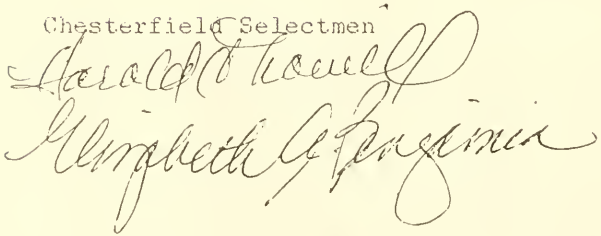 Chesterfield Selectmen
Harold
Elizabeth A Benjamin